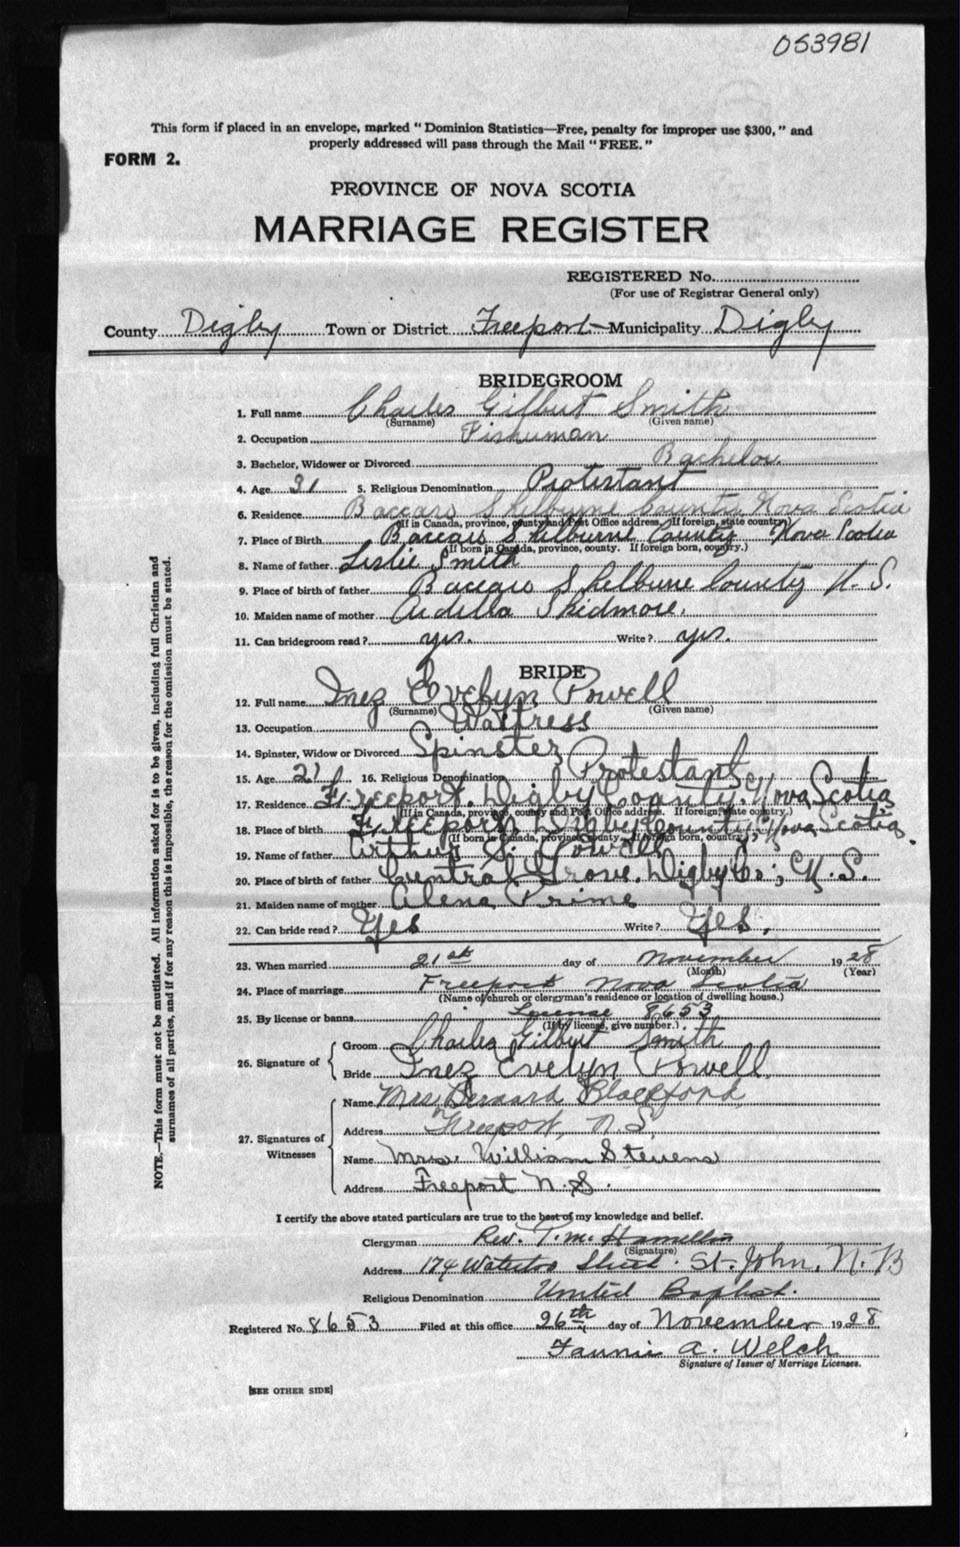 053981
This form if placed in an envelope, marked "Dominion Statistics—Free, penalty for improper use $300," and
properly addressed will pass through the Mail "FREE."
FORM 2.
PROVINCE OF NOVA SCOTIA
MARRIAGE REGISTER
REGISTERED No.
(For use of Registrar General only)
County Digby Town or District Freeport Municipality Digby
BRIDEGROOM
1. Full name Charles Gilbert Smith
(Surname) (Given name)
2. Occupation Fisherman
3. Bachelor, Widower or Divorced Bachelor.
4. Age 31 5. Religious Denomination Protestant
6. Residence Baccaro Shelburne County Nova Scotia
(If in Canada, province, county and Post Office address. If foreign, state country)
7. Place of Birth Baccaro Shelburne County Nova Scotia
(If born in Canada, province, county. If foreign born, country.)
8. Name of father Leslie Smith
9. Place of birth of father Baccaro Shelburne County N.S.
10. Maiden name of mother Ardella Skidmore.
11. Can bridegroom read? yes. Write? yes.
BRIDE
12. Full name Inez Evelyn Powell
(Surname) (Given name)
13. Occupation Waitress
14. Spinster, Widow or Divorced Spinster
15. Age 21 16. Religious Denomination Protestant
17. Residence Freeport, Digby County, Nova Scotia
(If in Canada, province, county and Post Office address. If foreign, state country.)
18. Place of birth Freeport, Digby County, Nova Scotia.
(If born in Canada, province, county. If foreign born, country.)
19. Name of father Arthur Powell
20. Place of birth of father Central Grove, Digby Co., N.S.
21. Maiden name of mother Alena Prime
22. Can bride read? Yes Write? Yes.
23. When married 21st day of November 1928
(Month) (Year)
24. Place of marriage Freeport Nova Scotia
(Name of church or clergyman's residence or location of dwelling house.)
25. By license or banns License 8653
(If by license, give number.)
26. Signature of
Groom Charles Gilbert Smith
Bride Inez Evelyn Powell
27. Signatures of Witnesses
Name Mrs. Bernard Blackford
Address Freeport, N.S.
Name Mrs. William Stevens
Address Freeport N.S.
I certify the above stated particulars are true to the best of my knowledge and belief.
Clergyman Rev. T. M. Hamilton
(Signature)
Address 174 Waterloo Street. St. John, N.B
Religious Denomination United Baptist.
Registered No. 8653 Filed at this office 26th day of November 1928
Fannie A. Welch
Signature of Issuer of Marriage Licenses.
[SEE OTHER SIDE]
NOTE.—This form must not be mutilated. All information asked for is to be given, including full Christian and
surnames of all parties, and if for any reason this is impossible, the reason for the omission must be stated.